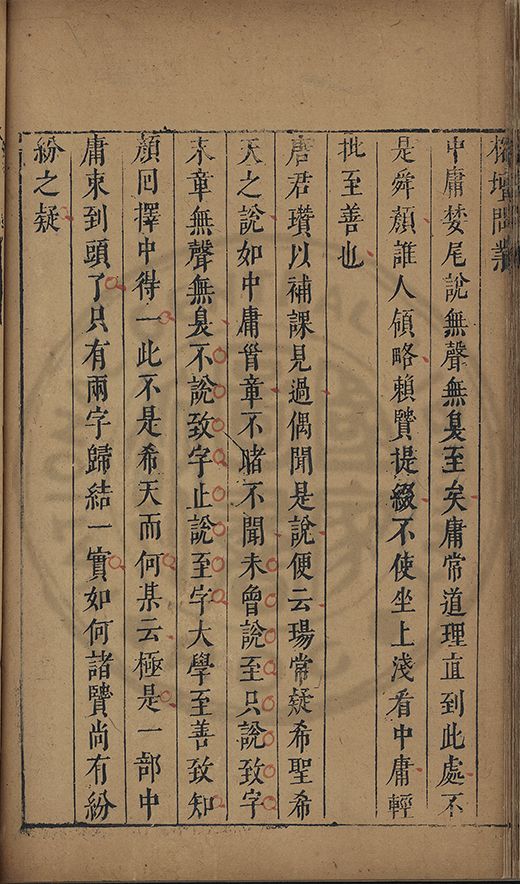 中庸婪尾說無聲無臭至矣庸常道理直到此處不
是舜顏誰人領略賴贒提綴不使坐上淺看中庸輕
批至善也
唐君瓚以補課見過偶聞是說便云瑒常疑希聖希
天之說如中庸首章不睹不聞未曾說至只說致字
末章無聲無臭不說致字止說至字大學至善致知
顏回擇中得一此不是希天而何某云極是一部中
庸東到頭了只有兩字歸結一實如何諸贒尚有紛
紛之疑